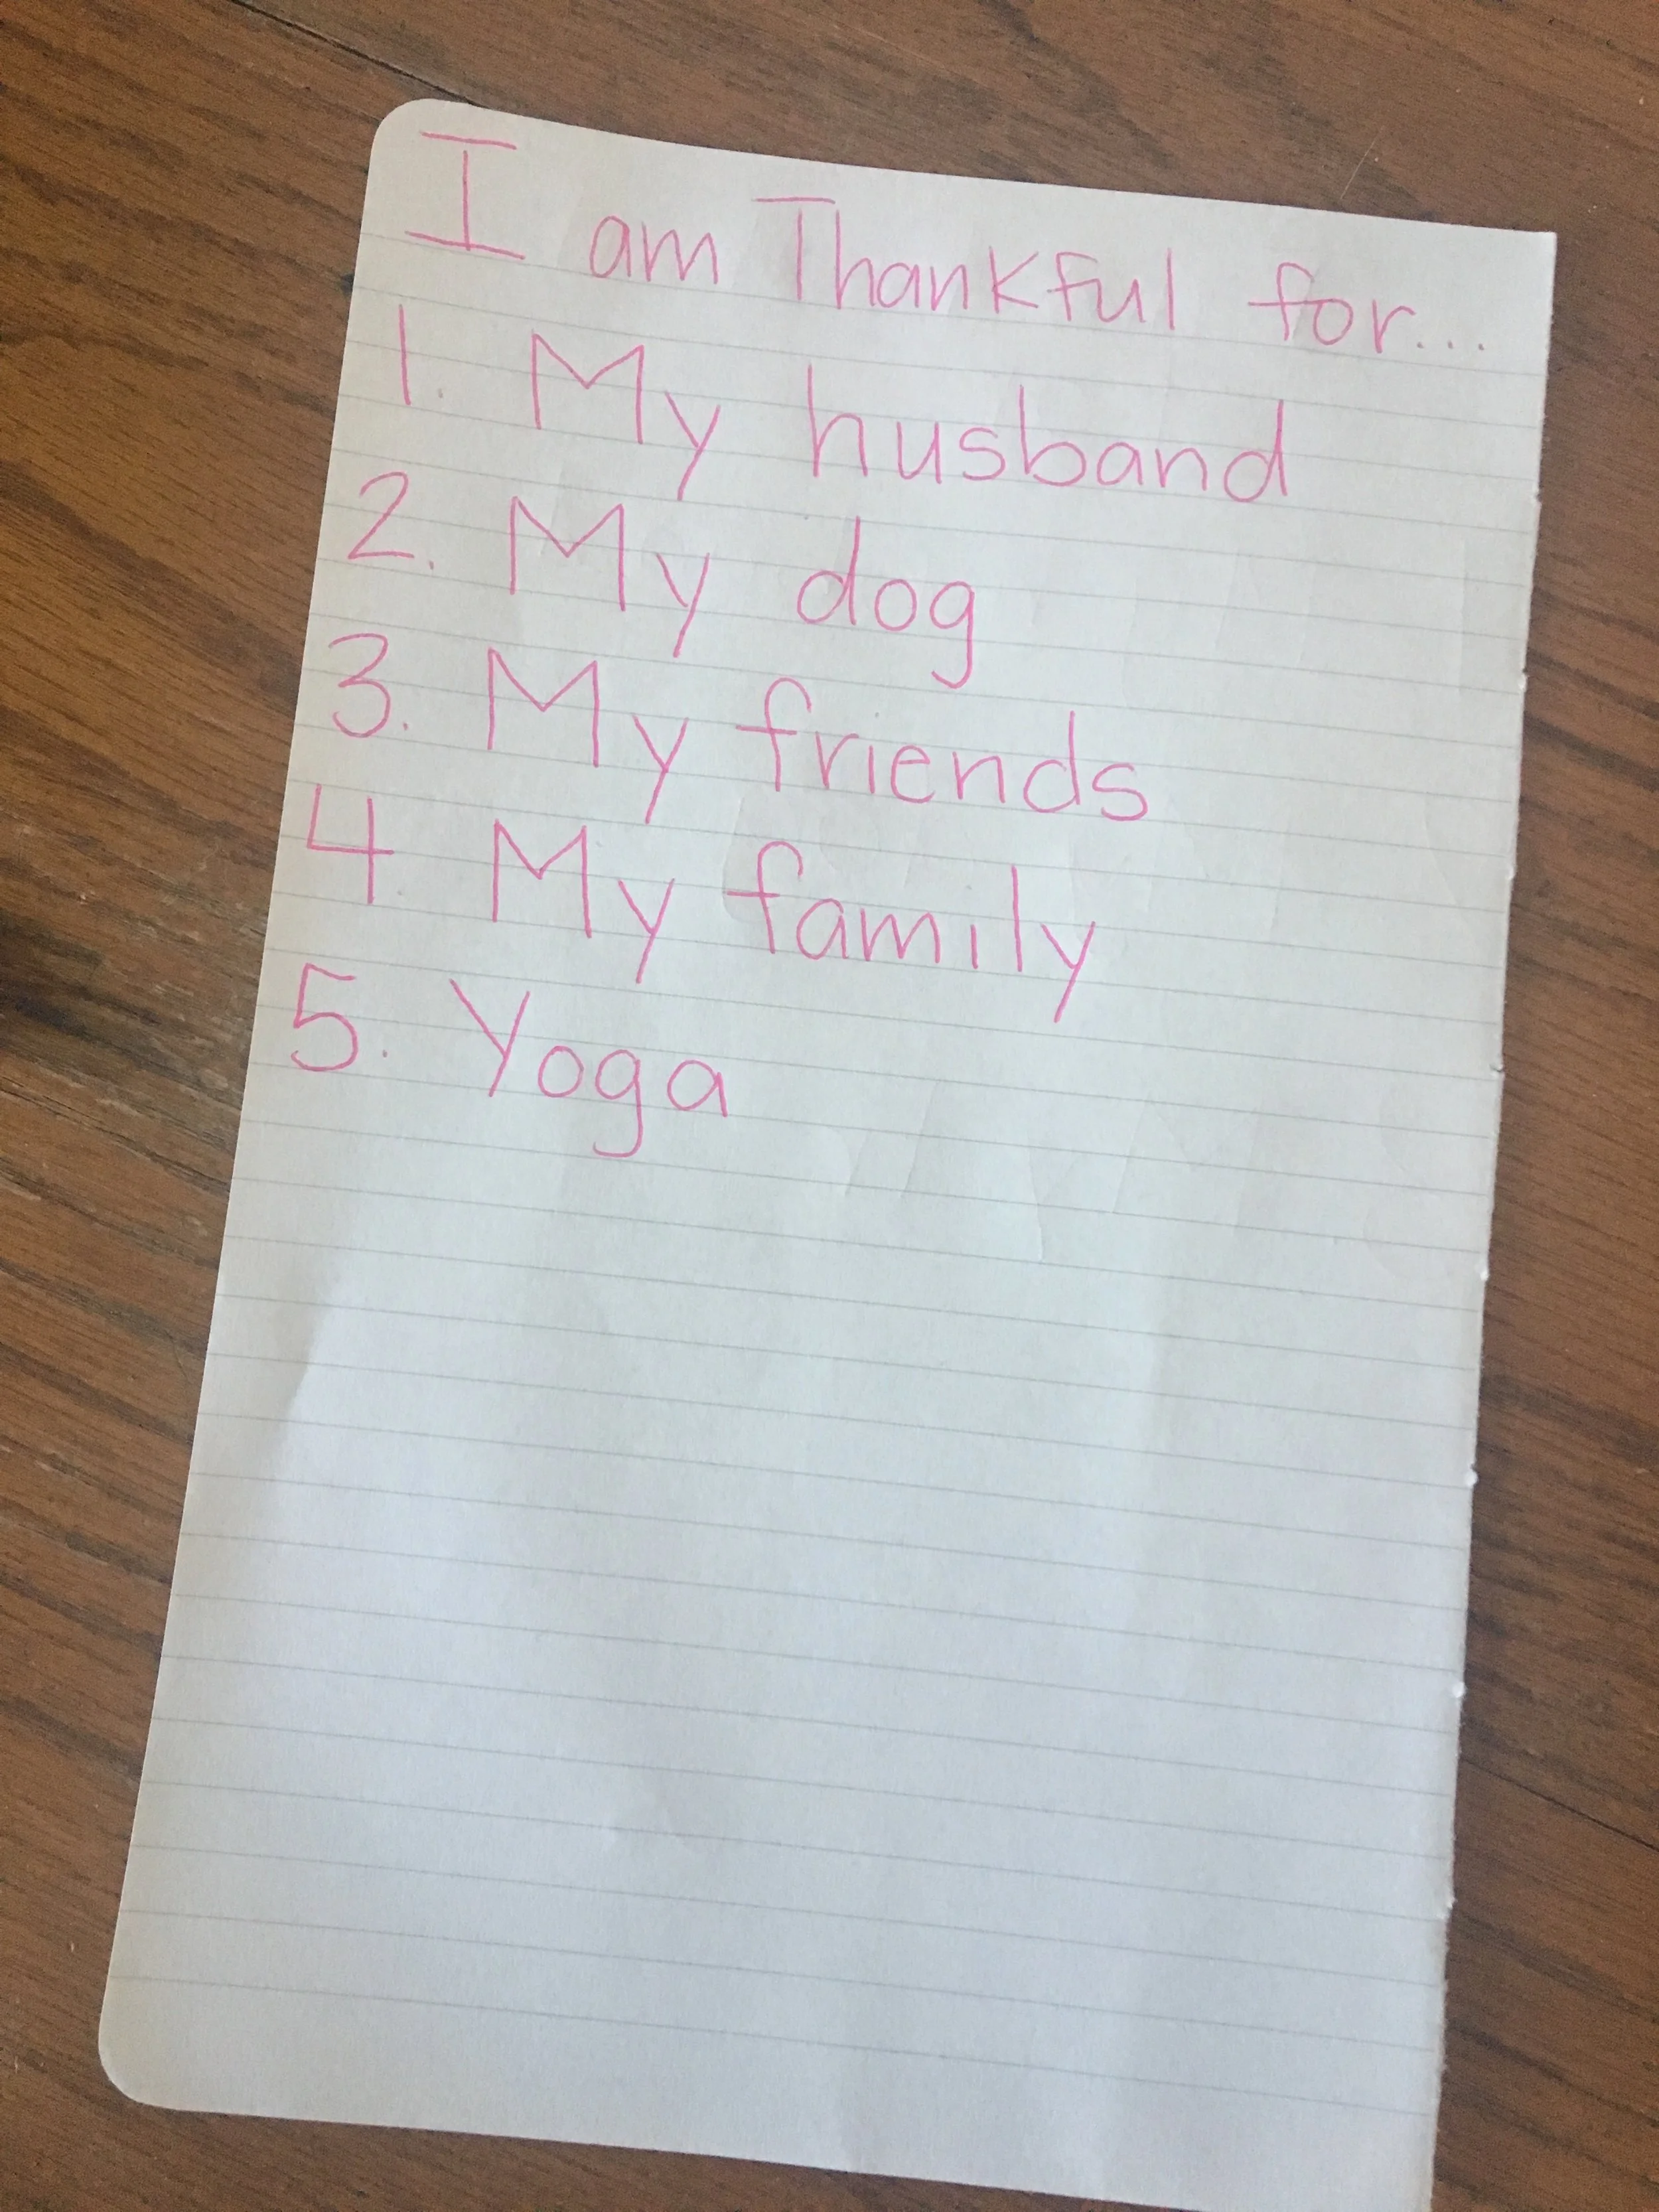 I am Thankful for...
1. My husband
2. My dog
3. My friends
4. My family
5. Yoga